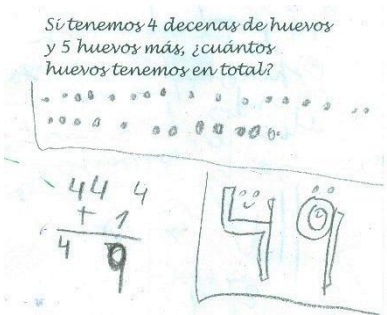 Si tenemos 4 decenas de huevos
y 5 huevos más, ¿cuántos
huevos tenemos en total?
44 4
+ 1
4 9
49